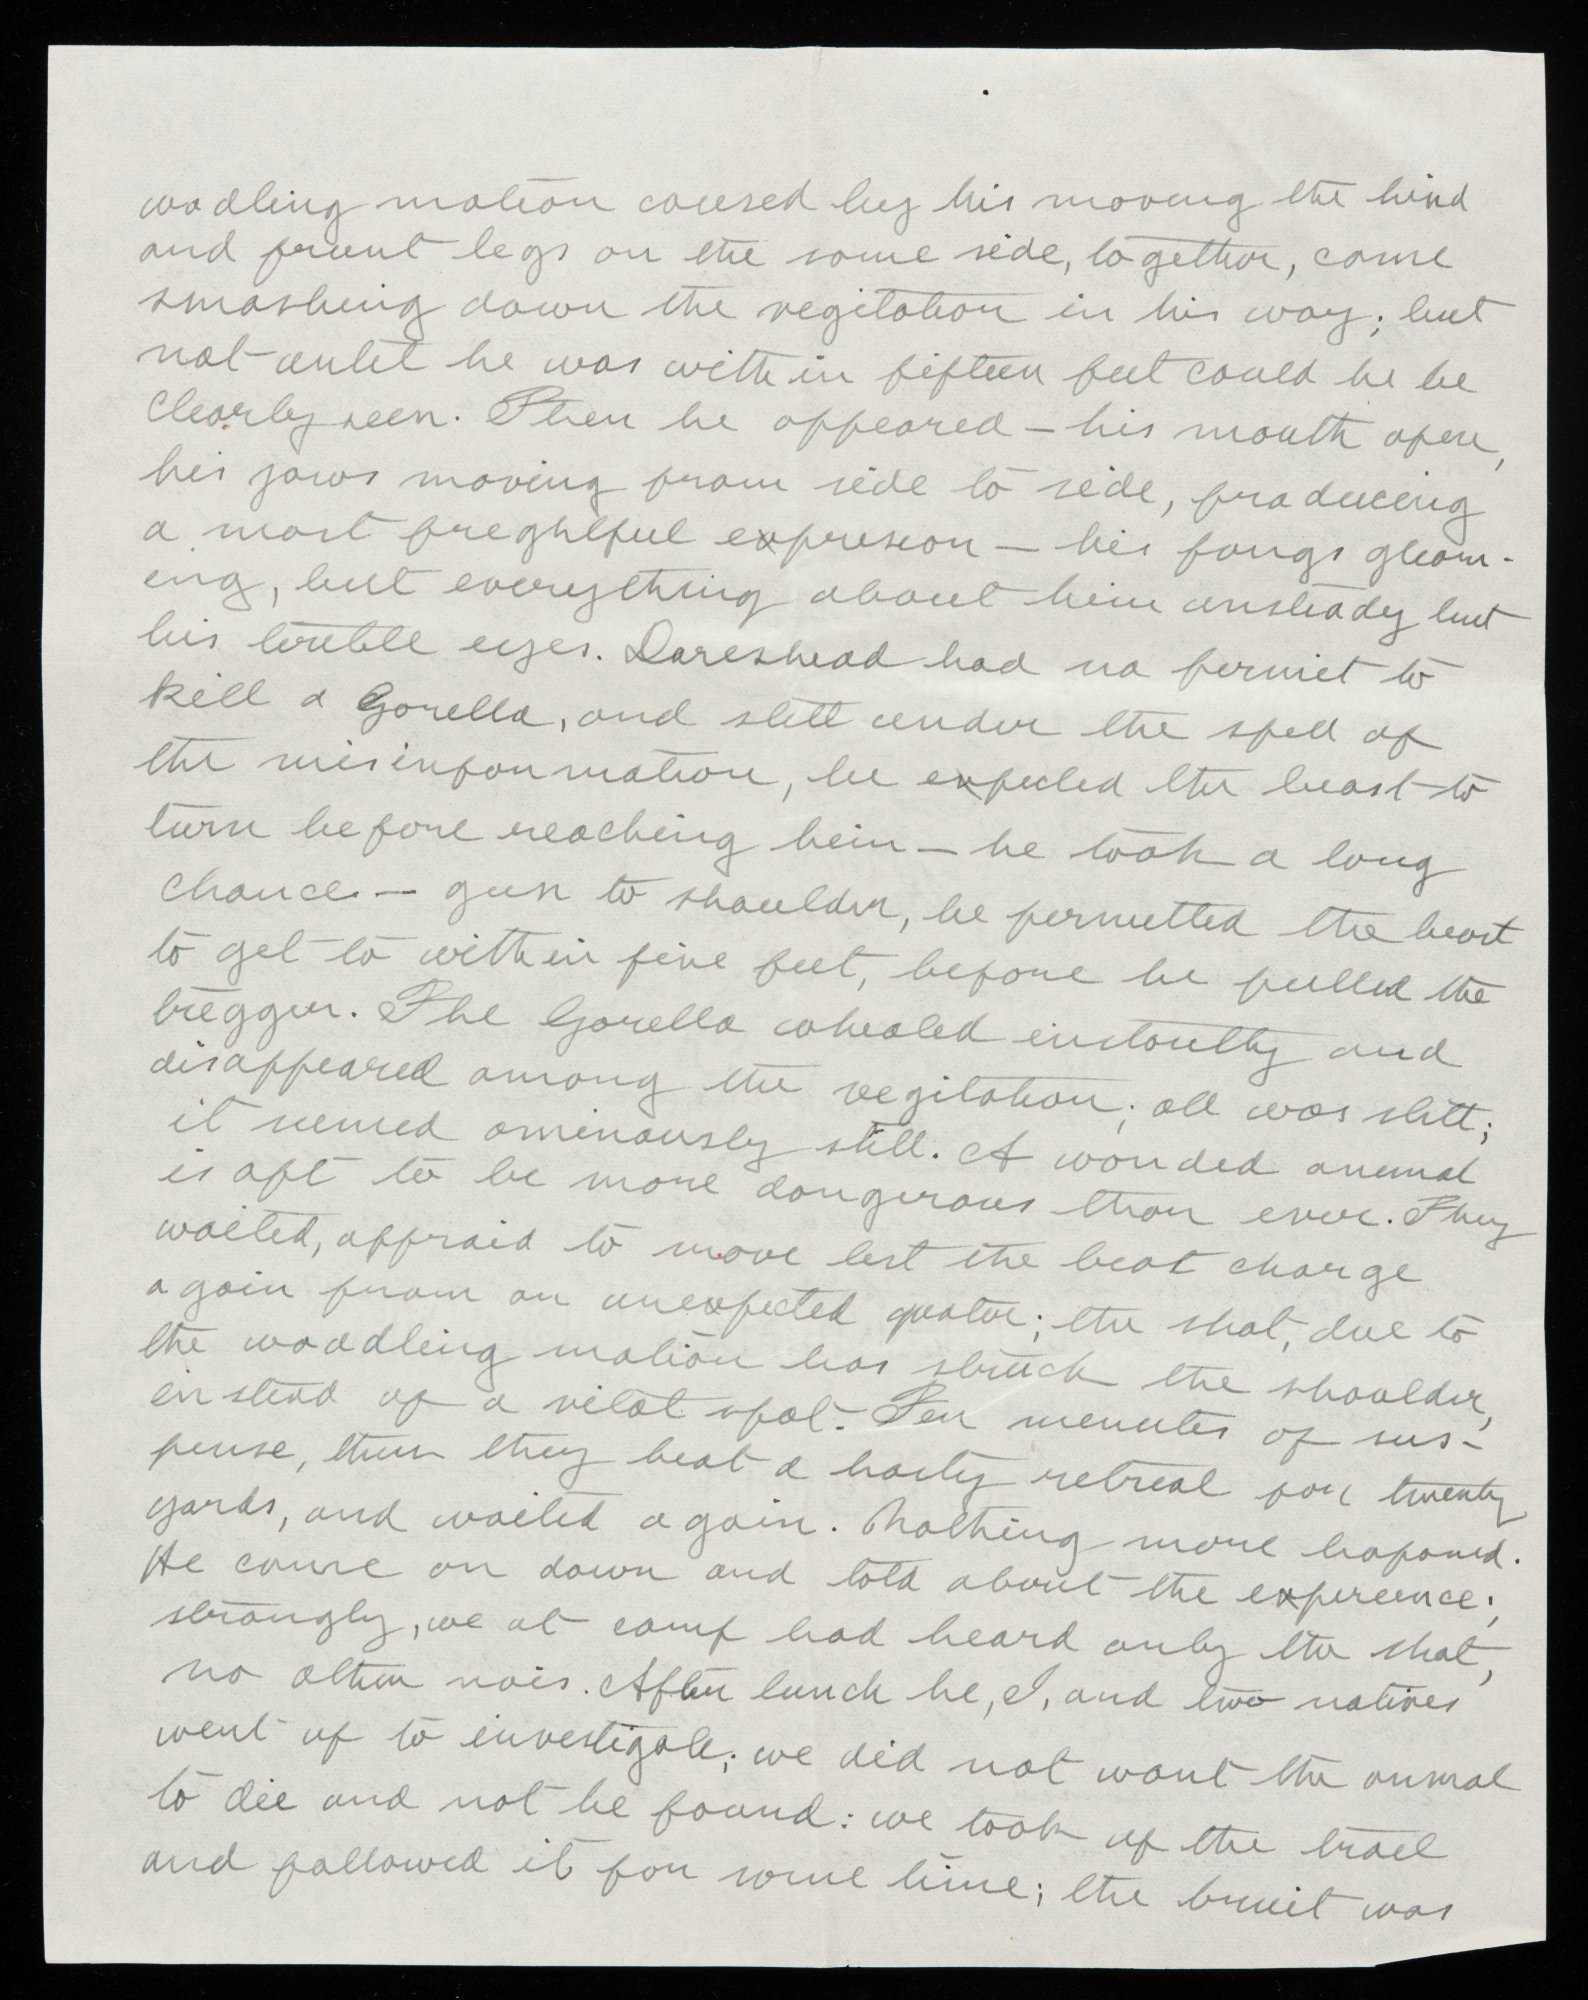 wadling motion coused by his moving the hind
and frunt legs on the same side, togethor, came
smashing down the vegitation in his way; but
not until he was with in fifteen feet could he be
clearly seen. Then he appeared – his mouth open,
his jaws moving from side to side, producing
a most freghtful expression – his fangs gleam-
ing, but everything about him unsteady but
his terible eyes. Dareshead had no permit to
kill a Gorella, and still under the spell of
the misinformation, he expected the beast to
turn before reaching him – he took a long
chance – gun to shoulder, he permitted the beast
to get to with in five feet, before he pulled the
trigger. The Gorella whealed instantly and
disappeared among the vegitation; all was still;
it seemed ominously still. A wonded animal
is apt to be more dangerous than ever. They
waited, affraid to move lest the beat charge
again from an unexpected quater; the shot, due to
the waadling motion has struck the shoulder,
in stead of a vital spot. Ten minutes of sus-
pense, then they beat a hasty retreat for twenty
yards, and waited again. Nothing more hapaned.
He came on down and told about the expereence;
strangly, we at camp had heard only the shot,
no other nois. After lunch he, I, and two natives
went up to investigate; we did not want the anmal
to die and not be found: we took up the trail
and followed it for some time; the bruit was